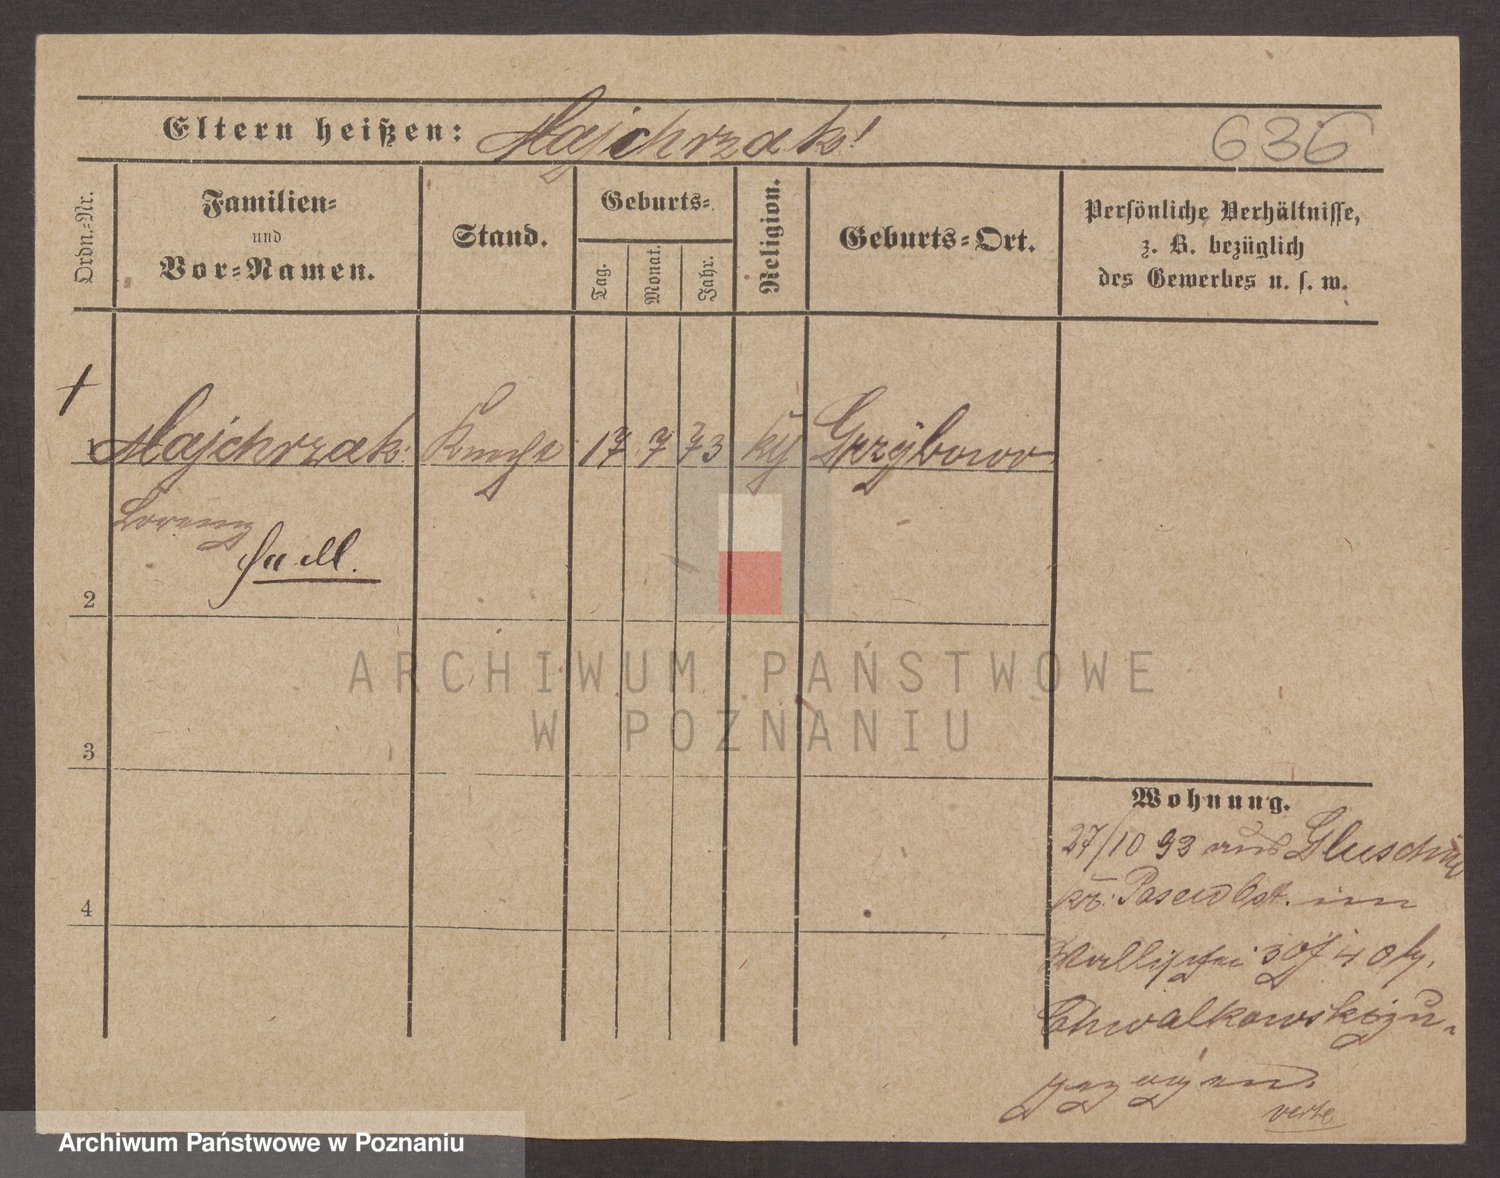 Eltern heißen: Majchrzak!
636
Ordn.-Nr.
Familien-
und
Vor-Namen.
Stand.
Geburts-
Tag.
Monat.
Jahr.
Religion.
Geburts-Ort.
Persönliche Verhältnisse,
z. B. bezüglich
des Gewerbes u. s. w.
1 Majchrzak Knecht 17 7 73 Grzybowo
Lorenz
2
3
4
Wohnung.
27/10 93 aus Gluschin
Posen Ost. im
Chwalkowski zu-
gezogen.
verte
ARCHIWUM PAŃSTWOWE
W POZNANIU
Archiwum Państwowe w Poznaniu